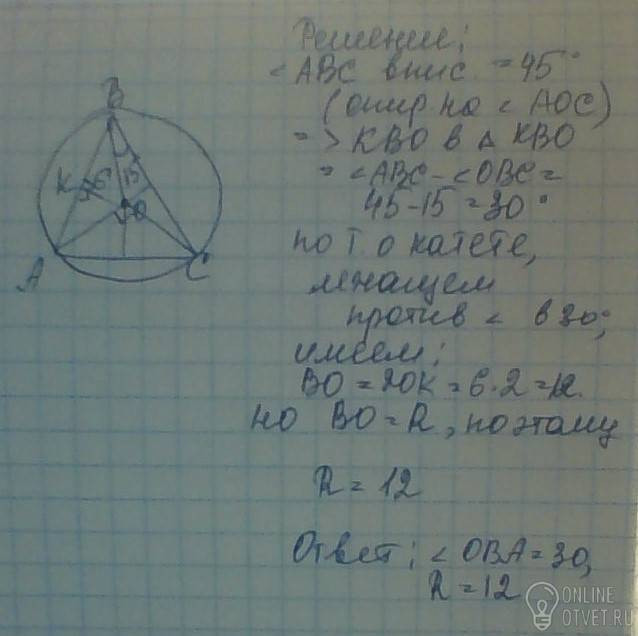 Решение:
< ABC впис. = 45°
(опир на < AOC)
=> KBO в △ KBO
= <ABC - <OBC =
45-15 = 30°
по т. о катете,
лежащем
против < в 30°,
имеем:
BO = 2OK = 6·2 = 12.
но BO = R, поэтому
R = 12
Ответ: < OBA = 30,
R = 12
B
K
6
15
O
A
C
ONLINE
OTVET.RU